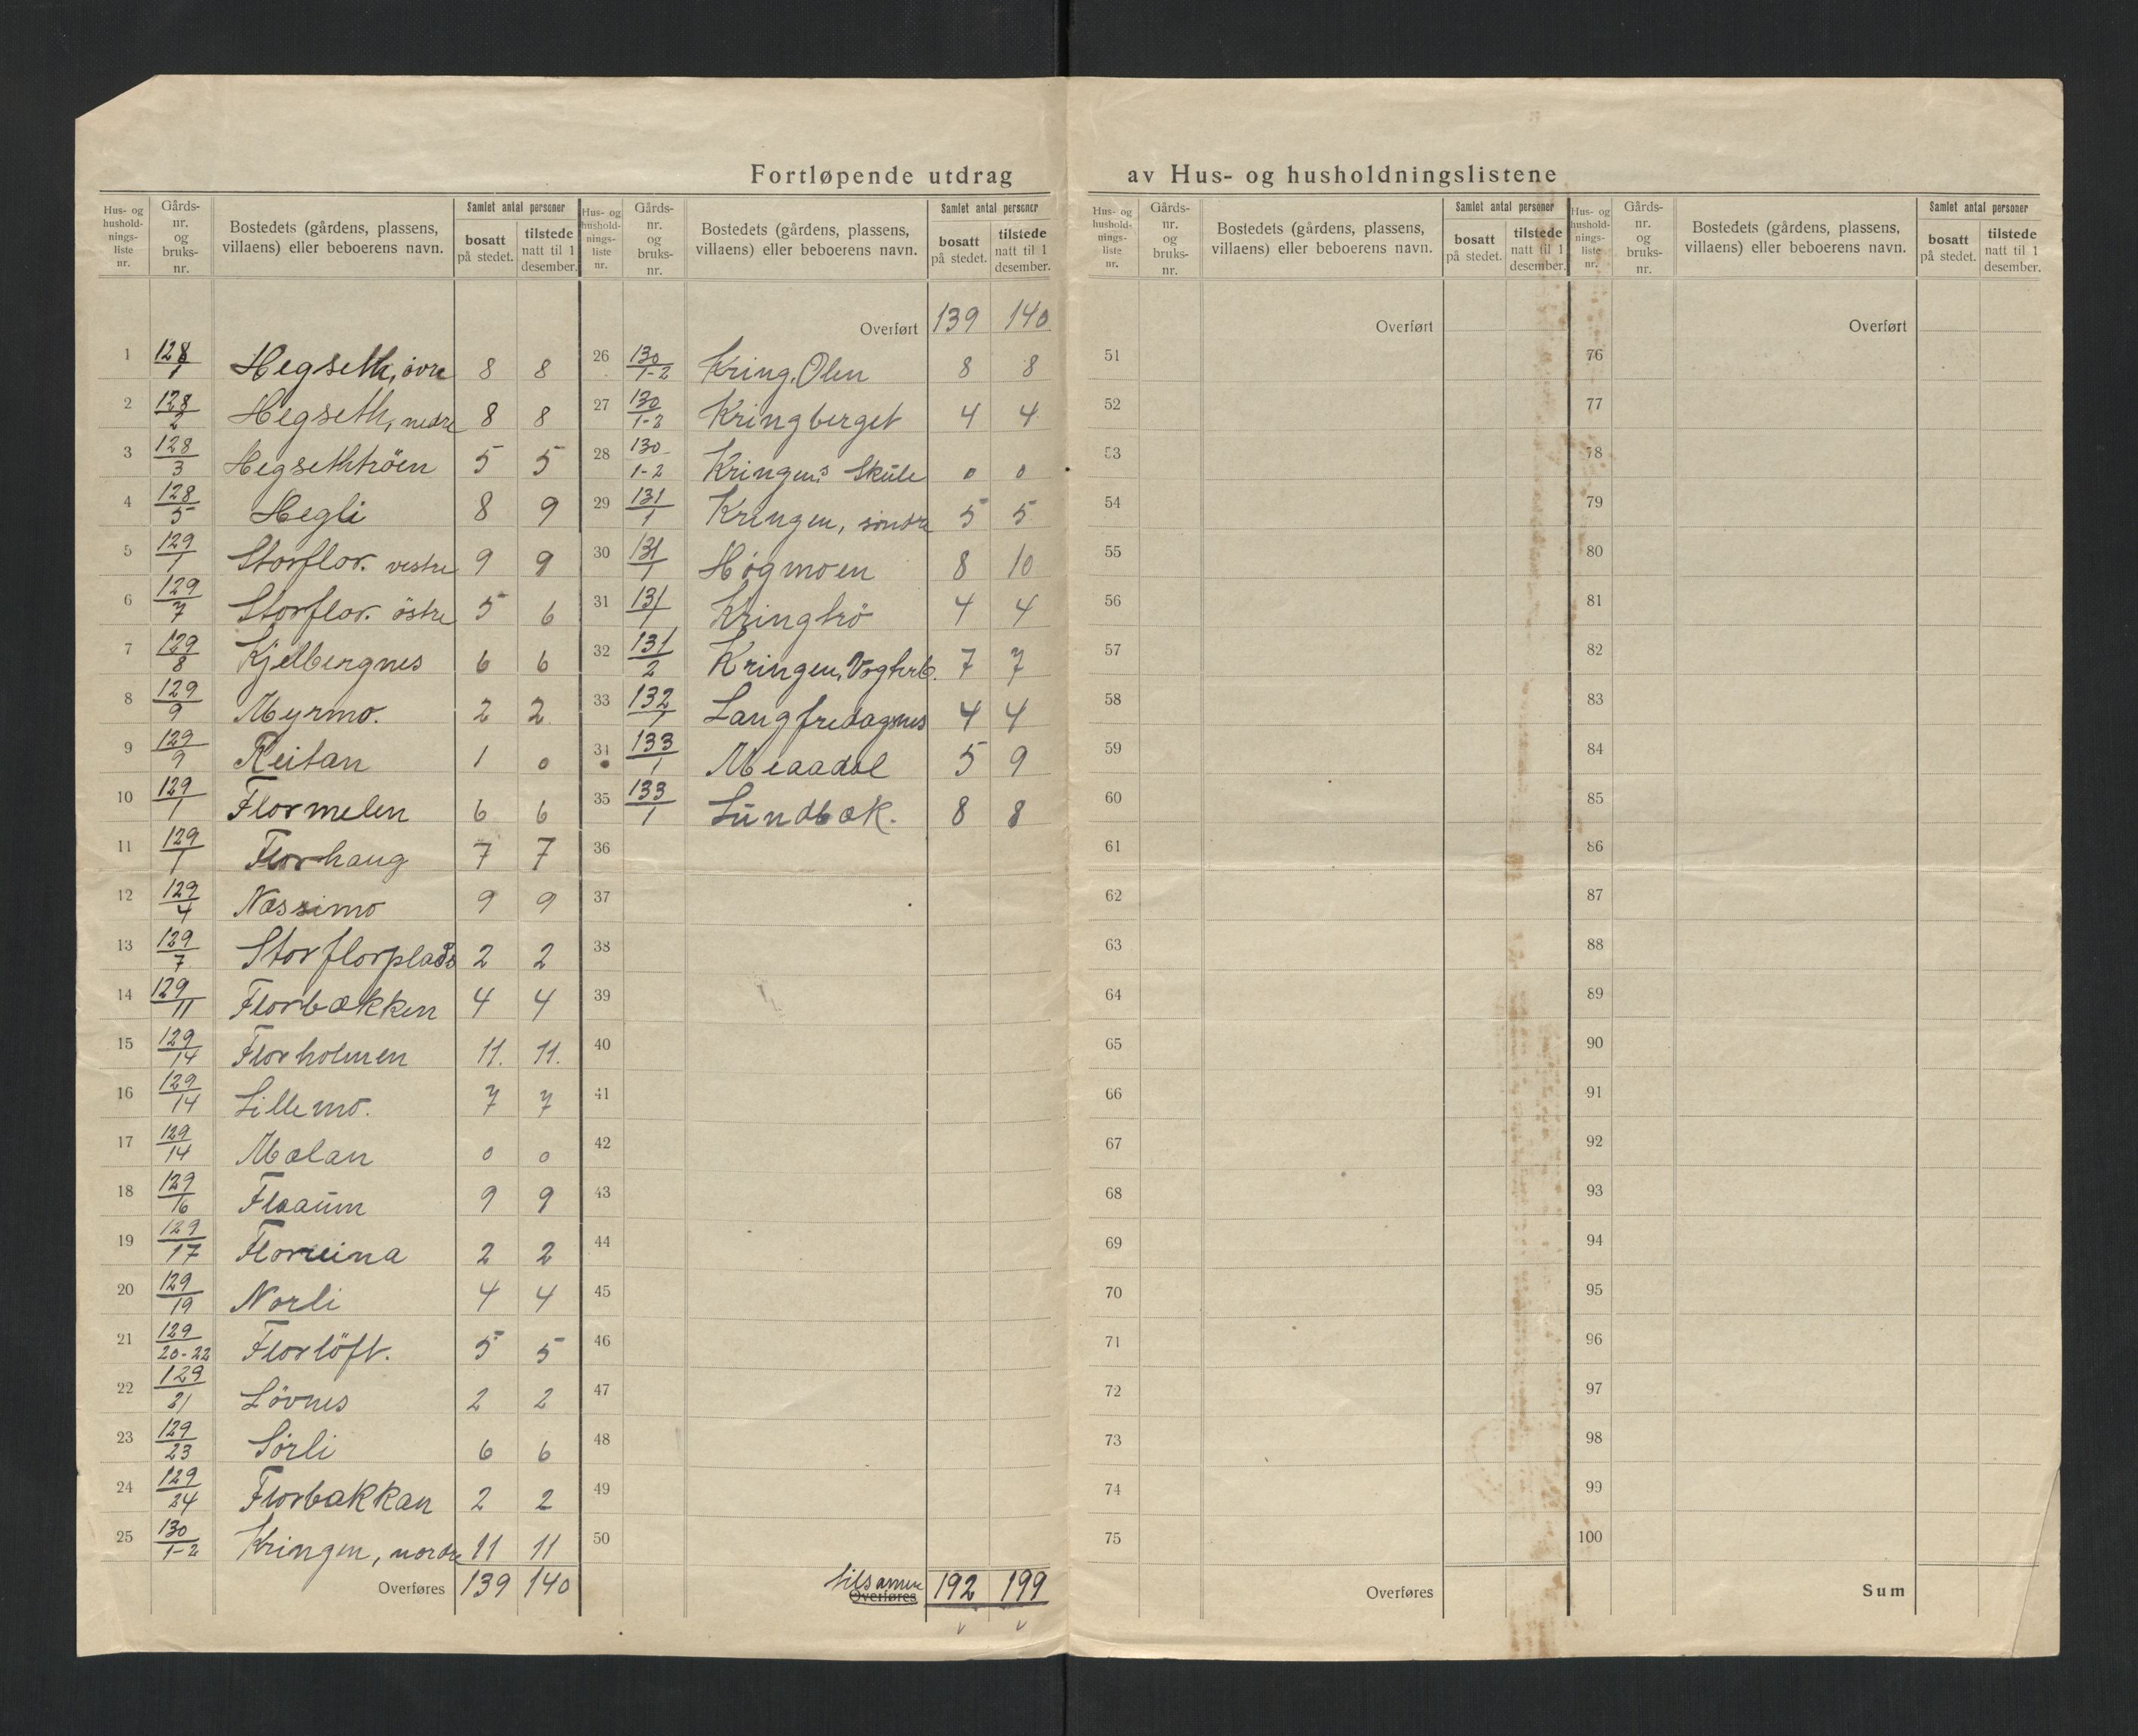 Fortløpende utdrag av Hus- og husholdningslistene
Hus- og hushold-nings-liste nr. | Gårds-nr. og bruks-nr. | Bostedets (gårdens, plassens, villaens) eller beboerens navn. | Samlet antal personer | bosatt på stedet. | tilstede natt til 1 desember.
1 128/1 Hegseth, övre 8 8
2 128/2 Hegseth, nedre 8 8
3 128/3 Hegsethtröen 5 5
4 128/5 Hegli 8 9
5 129/1 Storflor. vestre 9 9
6 129/7 Storflor. östre 5 6
7 129/8 Kjelbergnes 6 6
8 129/9 Myrmo. 2 2
9 129/9 Reitan 1 0
10 129/1 Flormelen 6 6
11 129/1 Florhaug 7 7
12 129/4 Næssimo 9 9
13 129/7 Storflorplads 2 2
14 129/11 Florbækken 4 4
15 129/14 Florholmen 11. 11.
16 129/14 Lillemo. 7 7
17 129/14 Mælan 0 0
18 129/16 Flaaum 9 9
19 129/17 Floreina 2 2
20 129/19 Norli 4 4
21 129/20-22 Florlöft. 5 5
22 129/21 Lövnes 2 2
23 129/23 Sörli 6 6
24 129/24 Florbakkan 2 2
25 130/1-2 Kringen, nordre 11 11
Overføres 139 140
Hus- og hushold-nings-liste nr. | Gårds-nr. og bruks-nr. | Bostedets (gårdens, plassens, villaens) eller beboerens navn. | Samlet antal personer | bosatt på stedet. | tilstede natt til 1 desember.
Overført 139 140
26 130/1-2 Kring. Olen 8 8
27 130/1-2 Kringberget 4 4
28 130/1-2 Kringens Skule 0 0
29 131/1 Kringen, söndre 5 5
30 131/1 Högmoen 8 10
31 131/1 Kringtrö 4 4
32 131/2 Kringen, Vogterb. 7 7
33 132/1 Langfredagsnes 4 4
34 133/1 Meaadal 5 9
35 133/1 Lundbæk. 8 8
36
37
38
39
40
41
42
43
44
45
46
47
48
49
50
tilsamen Overføres 192 199
Hus- og hushold-nings-liste nr. | Gårds-nr. og bruks-nr. | Bostedets (gårdens, plassens, villaens) eller beboerens navn. | Samlet antal personer | bosatt på stedet. | tilstede natt til 1 desember.
Overført
51
52
53
54
55
56
57
58
59
60
61
62
63
64
65
66
67
68
69
70
71
72
73
74
75
Overføres
Hus- og hushold-nings-liste nr. | Gårds-nr. og bruks-nr. | Bostedets (gårdens, plassens, villaens) eller beboerens navn. | Samlet antal personer | bosatt på stedet. | tilstede natt til 1 desember.
Overført
76
77
78
79
80
81
82
83
84
85
86
87
88
89
90
91
92
93
94
95
96
97
98
99
100
Sum